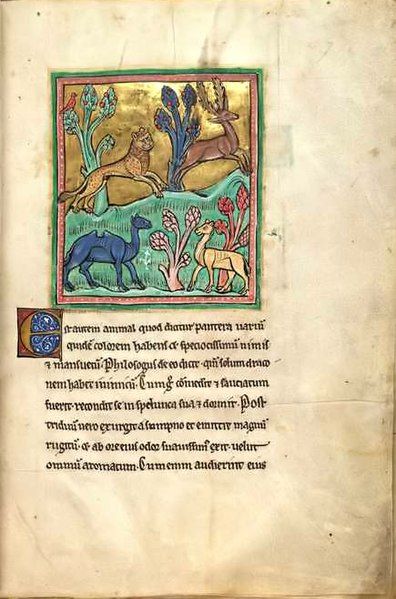 Est autem animal quod dicitur pantera uariū
quidē colorem habens & speciocissimū nimis
⁊ mansuetū. Philosogus de eo dicit. qm̄ solum draco
nem habet inimicū. Cumq; comederit ⁊ sauciatum
fuerit. recondit se in spelunca sua ⁊ dormit. Post
triduum uero exurgit a sompno et emittit magnū
rugitū. & ab ore eius odor suauissim' exit uelut
omnium aromatum. Cum enim audierint eius